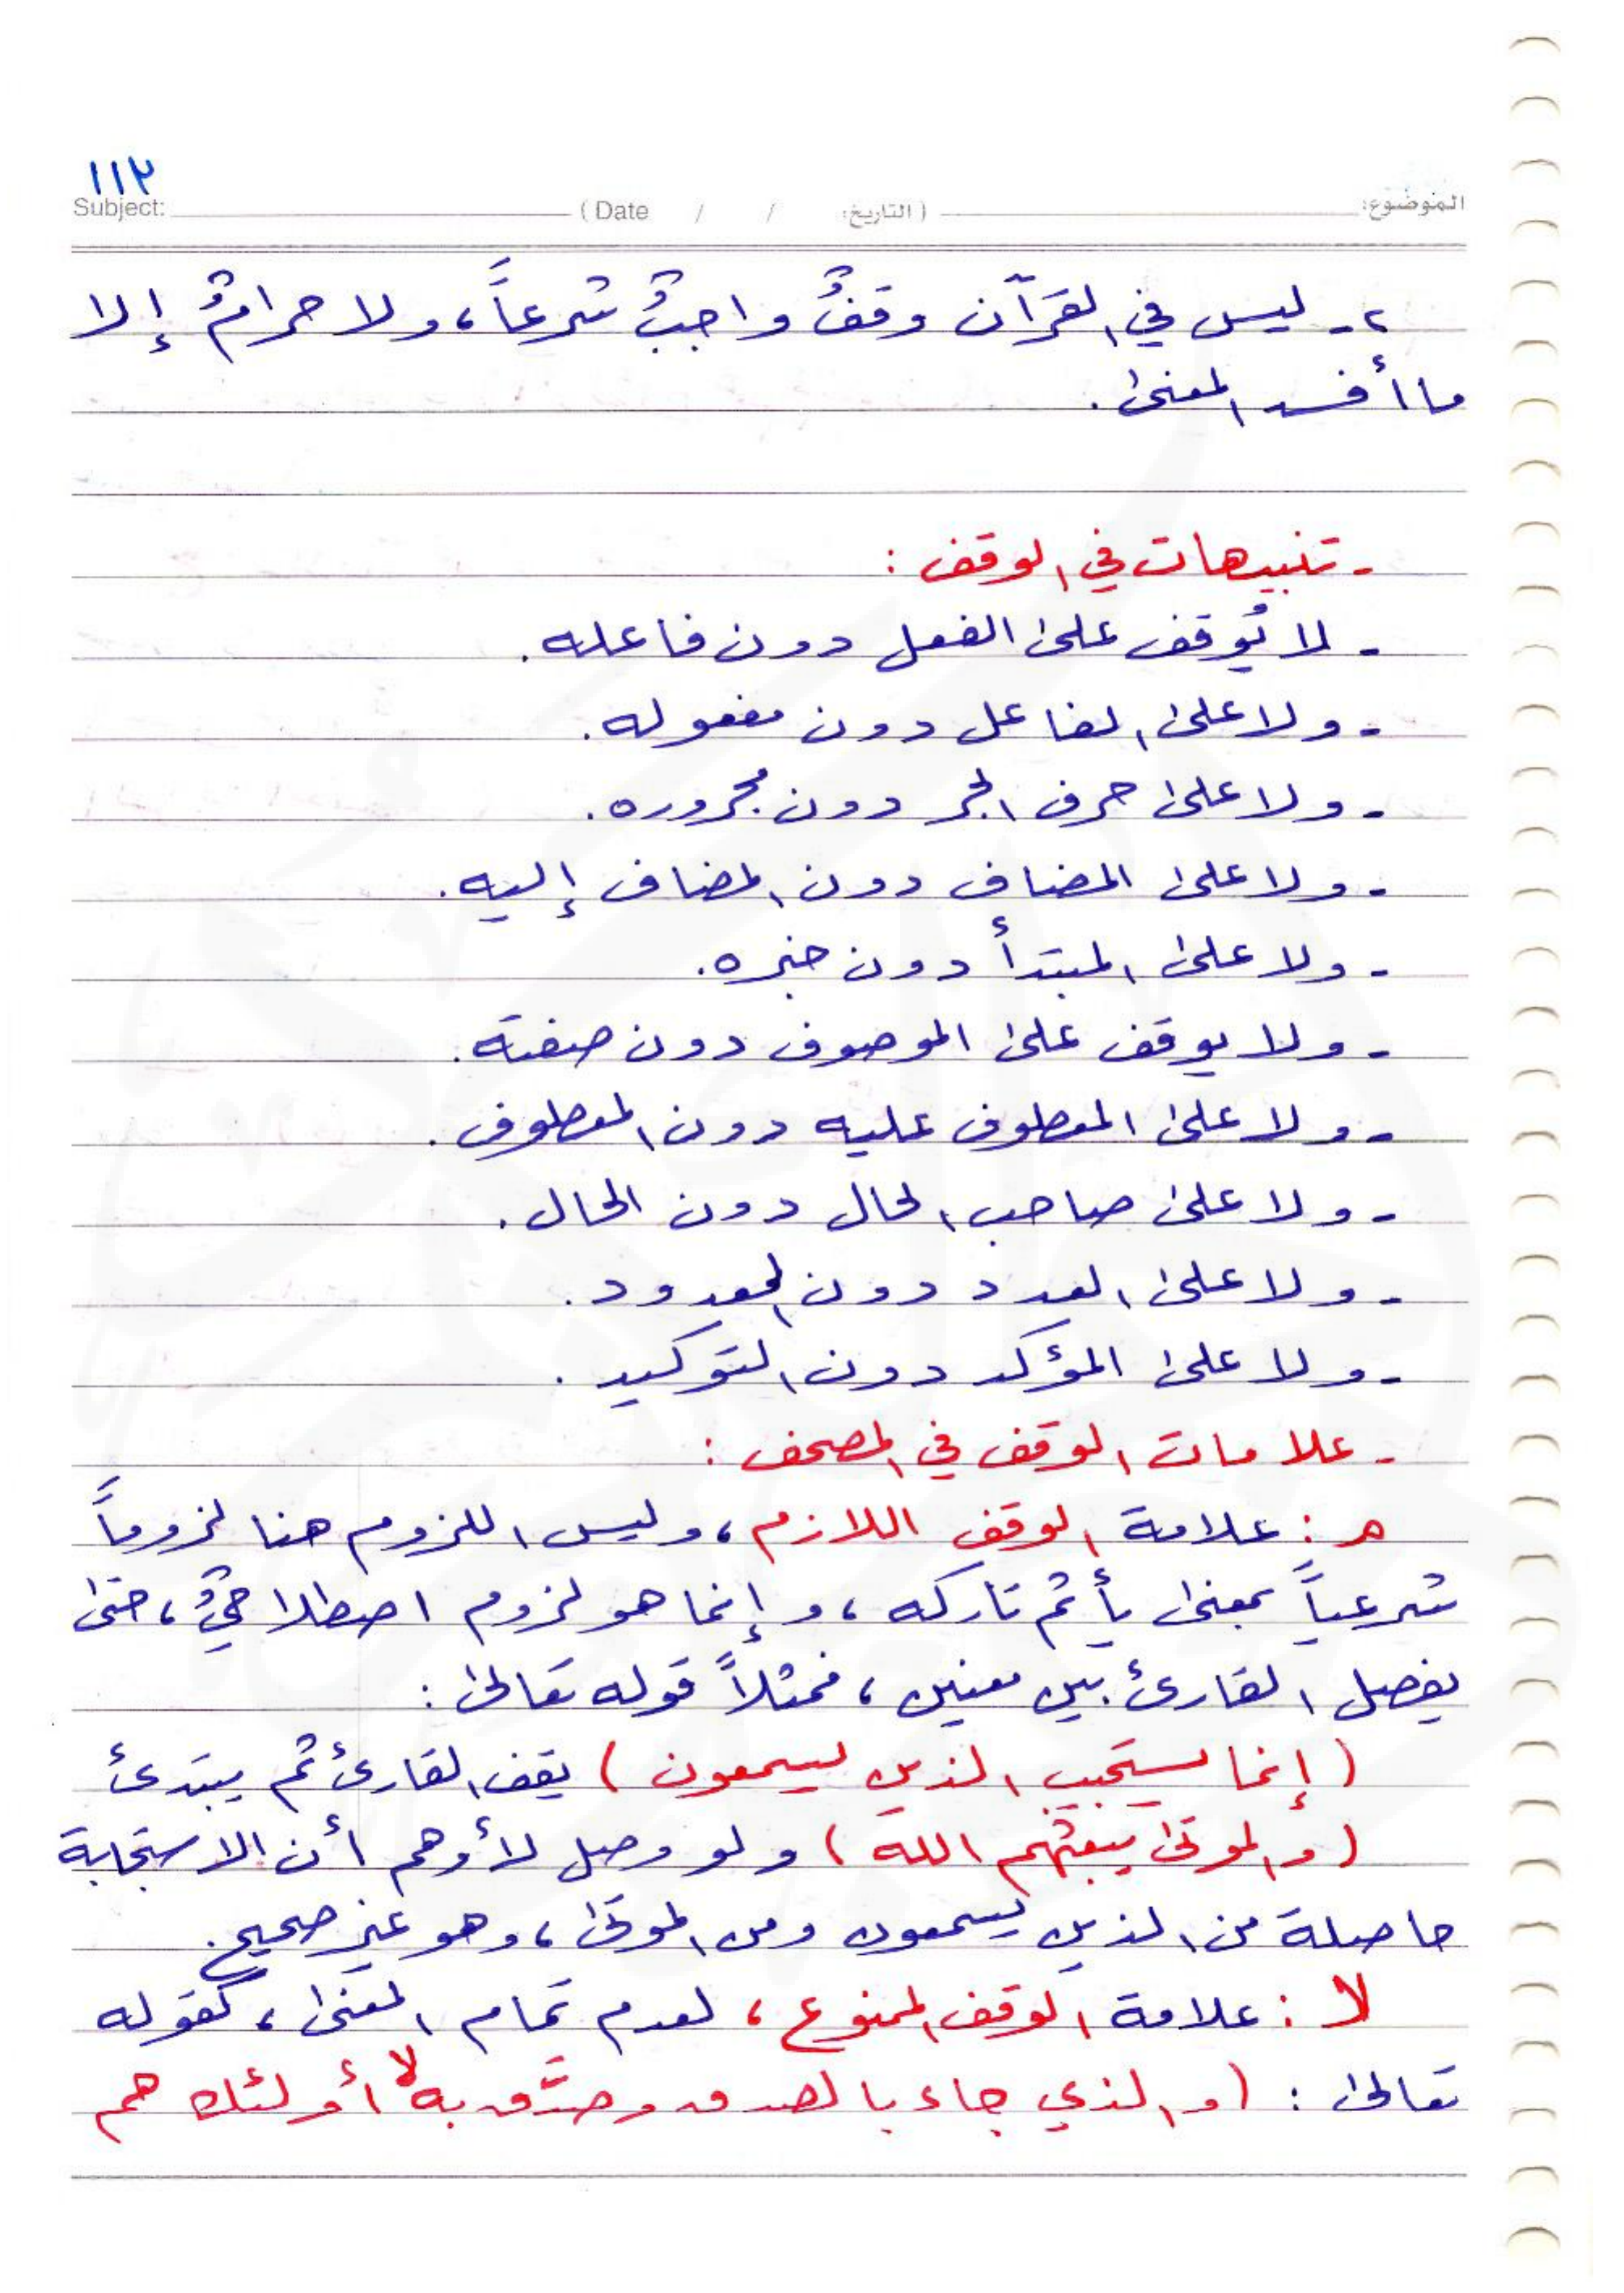 ١١٢
Subject: ( Date / / التاريخ: ) الموضوع:
٢- ليس في القرآن وقفٌ واجبٌ شرعاً، ولا حرامٌ إلا
ما أفسد المعنى.
- تنبيهات في الوقف :
- لا يُوقف على الفعل دون فاعله.
- ولا على الفاعل دون مفعوله.
- ولا على حرف الجر دون مجروره.
- ولا على المضاف دون المضاف إليه.
- ولا على المبتدأ دون خبره.
- ولا يوقف على الموصوف دون صفته.
- ولا على المعطوف عليه دون المعطوف.
- ولا على صاحب الحال دون الحال.
- ولا على العدد دون المعدود.
- ولا على المؤكد دون التوكيد.
- علامات الوقف في المصحف :
مـ : علامة الوقف اللازم، وليس اللزوم هنا لزوماً
شرعياً بمعنى يأثم تاركه، وإنما هو لزوم اصطلاحيٌ، حتى
يفصل القارئ بين معنين، فمثلاً قوله تعالى :
(إنما يستجيب الذين يسمعون) يقف القارئ ثم يبتدئ
(والموتى يبعثهم الله) ولو وصل لأوهم أن الاستجابة
حاصلة من الذين يسمعون ومن الموتى، وهو غير صحيح.
لا : علامة الوقف الممنوع، لعدم تمام المعنى، كقوله
تعالى : (والذي جاء بالصدق وصدَّق به لا أولئك هم